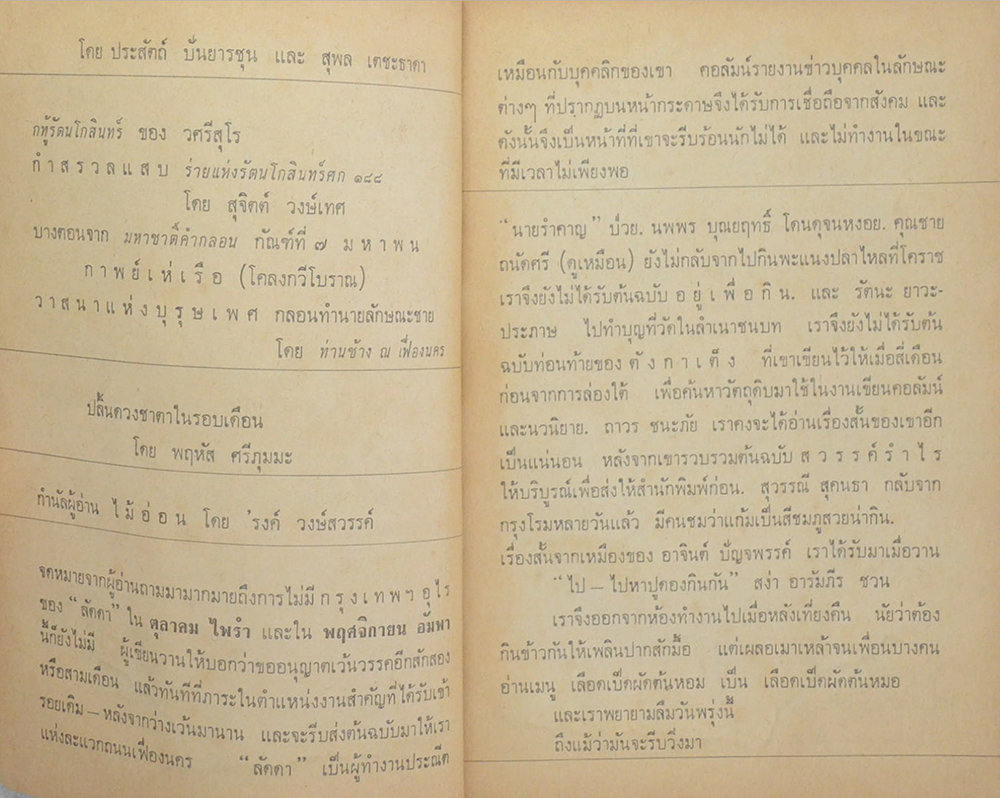 โดย ประสัตถ์ บั่นยารชุน และ สุพล เตชะธาดา
กทู้รัตนโกสินทร์ ของ วศรีสุโร
กำสรวลแสบ ร่ายแห่งรัตนโกสินทร์ศก ๑๘๘
โดย สุจิตต์ วงษ์เทศ
บางตอนจาก มหาชาติ์คำกลอน กัณฑ์ที่ ๗ มหาพน
กาพย์เห่เรือ (โคลงกวีโบราณ)
วาสนาแห่งบุรุษเพศ กลอนทำนายลักษณะชาย
โดย ท่านช้าง ณ เฟื่องนคร
ปลิ้นดวงชาตาในรอบเดือน
โดย พฤหัส ศรีภุมมะ
กำนัลผู้อ่าน ไม้อ่อน โดย 'รงค์ วงษ์สวรรค์
จดหมายจากผู้อ่านถามมามากมายถึงการไม่มี กรุงเทพฯอุไร
ของ “ลัดดา” ใน ตุลาคม ไพรำ และใน พฤศจิกายน อัมพา
นี้ก็ยังไม่มี ผู้เขียนวานให้บอกว่าขออนุญาตเว้นวรรคอีกสักสอง
หรือสามเดือน แล้วทันทีที่ภาระในตำแหน่งงานสำคัญที่ได้รับเข้า
รอยเดิม – หลังจากว่างเว้นมานาน และจะรีบส่งต้นฉบับมาให้เรา
แห่งละแวกถนนเฟื่องนคร “ลัดดา” เป็นผู้ทำงานประณีต
เหมือนกับบุคคลิกของเขา คอลัมน์รายงานข่าวบุคคลในลักษณะ
ต่างๆ ที่ปรากฏบนหน้ากระดาษจึงได้รับการเชื่อถือจากสังคม และ
ดังนั้นจึงเป็นหน้าที่ที่เขาจะรีบร้อนนักไม่ได้ และไม่ทำงานในขณะ
ที่มีเวลาไม่เพียงพอ
“นายรำคาญ” ป่วย. นพพร บุณยฤทธิ์ โดนดุจนหงอย. คุณชาย
ถนัดศรี (ดูเหมือน) ยังไม่กลับจากไปกินพะแนงปลาไหลที่โคราช
เราจึงยังไม่ได้รับต้นฉบับ อยู่เพื่อกิน. และ รัตนะ ยาวะ-
ประภาษ ไปทำบุญที่วัดในลำเนาชนบท เราจึงยังไม่ได้รับต้น
ฉบับท่อนท้ายของ ตังกาเต็ง ที่เขาเขียนไว้ให้เมื่อสี่เดือน
ก่อนจากการล่องใต้ เพื่อค้นหาวัตถุดิบมาใช้ในงานเขียนคอลัมน์
และนวนิยาย. ถาวร ชนะภัย เราคงจะได้อ่านเรื่องสั้นของเขาอีก
เป็นแน่นอน หลังจากเขารวบรวมต้นฉบับ สวรรค์รำไร
ให้บริบูรณ์เพื่อส่งให้สำนักพิมพ์ก่อน. สุวรรณี สุคนธา กลับจาก
กรุงโรมหลายวันแล้ว มีคนชมว่าแก้มเป็นสีชมภูสวยน่ากิน.
เรื่องสั้นจากเหมืองของ อาจินต์ ปัญจพรรค์ เราได้รับมาเมื่อวาน
“ไป – ไปหาปูดองกินกัน” สง่า อารัมภีร ชวน
เราจึงออกจากห้องทำงานไปเมื่อหลังเที่ยงคืน นัยว่าต้อง
กินข้าวกันให้เพลินปากสักมื้อ แต่เผลอเมาเหล้าจนเพื่อนบางคน
อ่านเมนู เลือดเป็ดผัดต้นหอม เป็น เลือดเป็ดผัดต้นหมอ
และเราพยายามลืมวันพรุ่งนี้
ถึงแม้ว่ามันจะรีบวิ่งมา